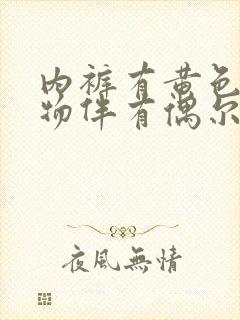 内裤有黄色
物伴有偶尔
夜風無情